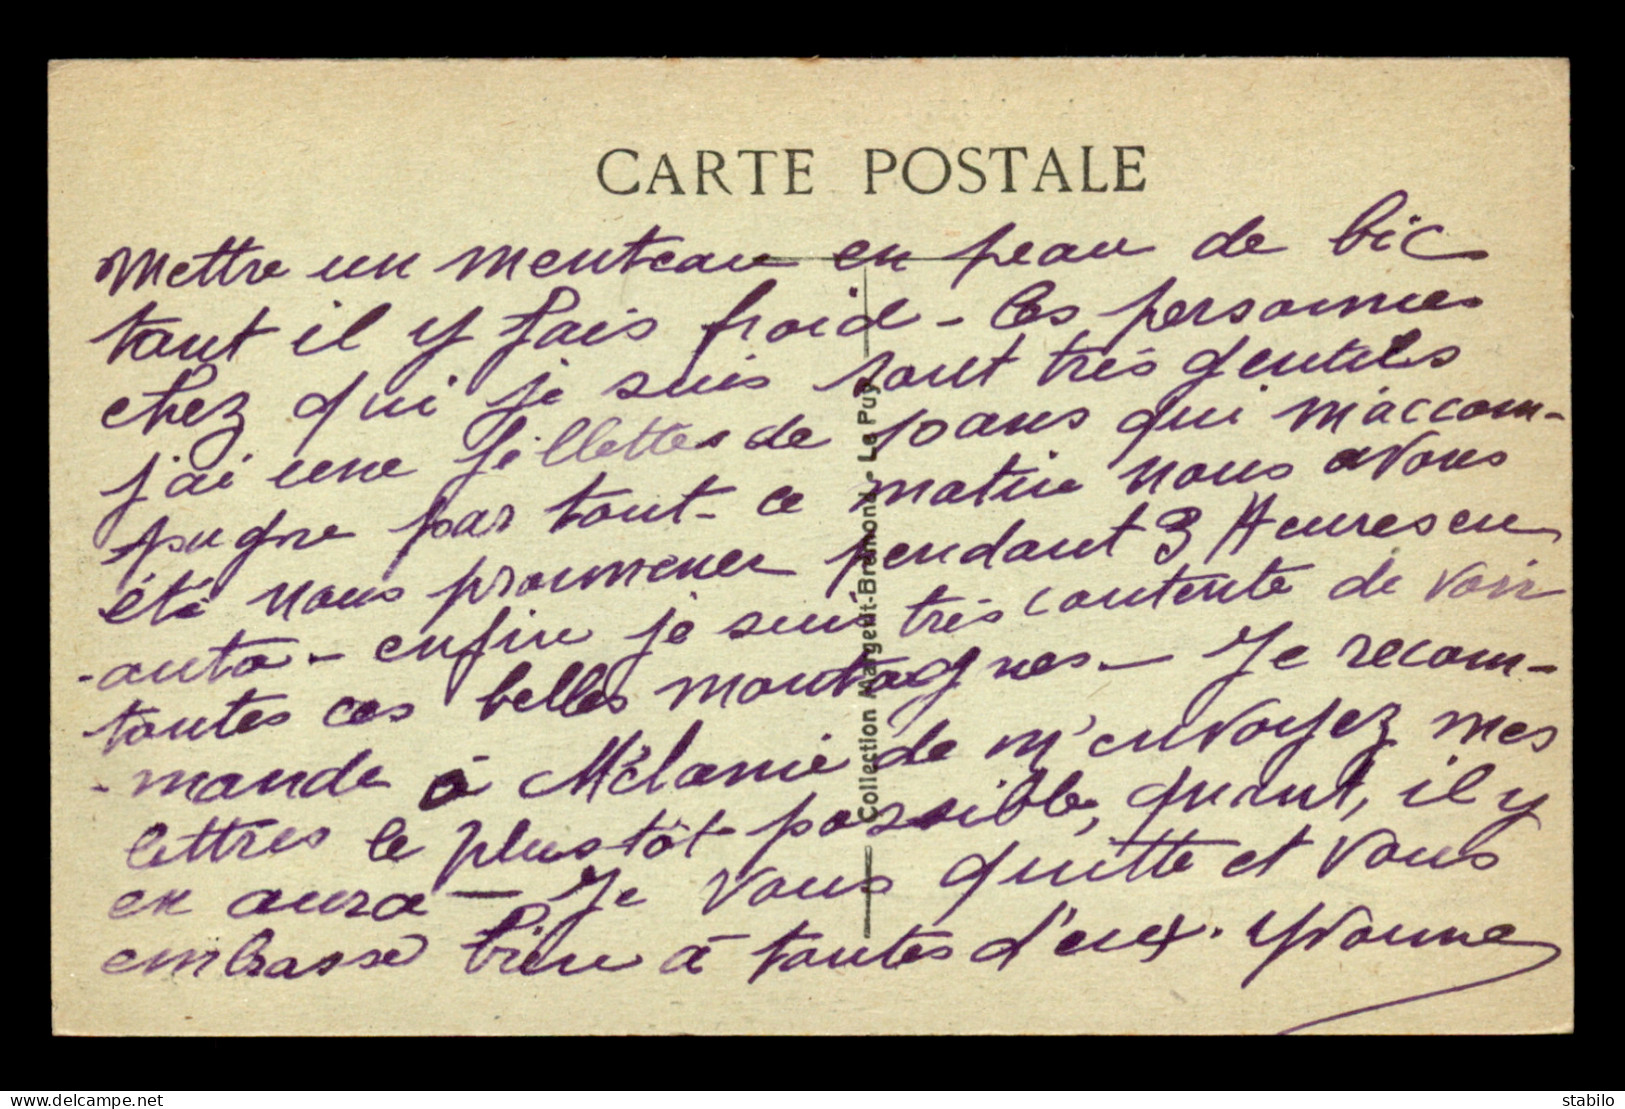 CARTE POSTALE
Mettre un menteau en peau de bic
tant il y fais froid - les personnes
chez qui je suis sont très gentils
j'ai une fillettes de 10 ans qui m'accom-
pagne par tout - ce matin nous avons
été nous promener pendant 3 Heures en
-auto - enfin je suis très contente de voir
toutes ces belles montagnes - Je recom-
-mande à Mélanie de m'envoyez mes
lettres le plustôt possible, quant, il y
en aura - Je vous quitte et vous
embrasse bien à toutes d'eux. Yvonne
Collection Margerit-Brémond - Le Puy
delcampe.net
stabilo